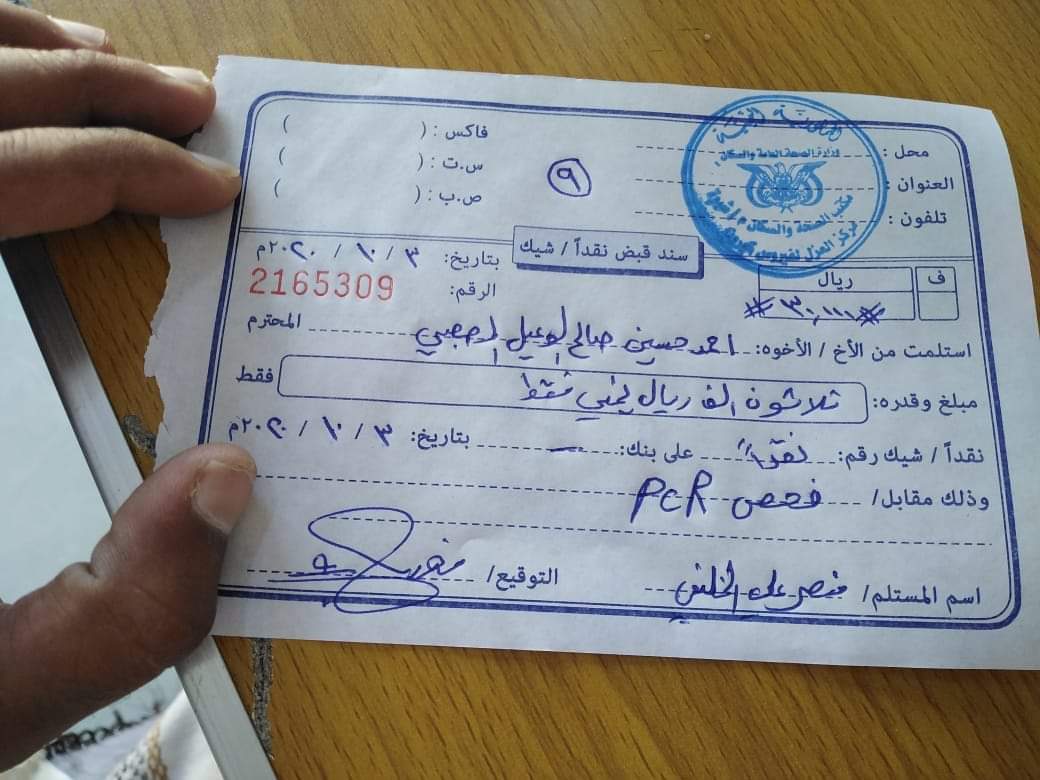 محل :
فاكس : ( )
العنوان :
س.ت : ( )
تلفون :
ص.ب : ( )
٩
وزارة الصحة العامة والسكان
مكتب الصحة والسكان م/شبوة
سند قبض نقداً / شيك
بتاريخ: ٣ / ١٠ / ٢٠٢٠م
الرقم: 2165309
ف ريال
#٣٠,٠٠٠#
استلمت من الأخ / الأخوه: احمد حسين صالح المحترم
مبلغ وقدره: ثلاثون الف ريال يمني فقط فقط
نقداً / شيك رقم: نقداً على بنك: — بتاريخ: ٣ / ١٠ / ٢٠٢٠م
وذلك مقابل/ فحص PCR
اسم المستلم/ منصر علي الخليفي التوقيع/